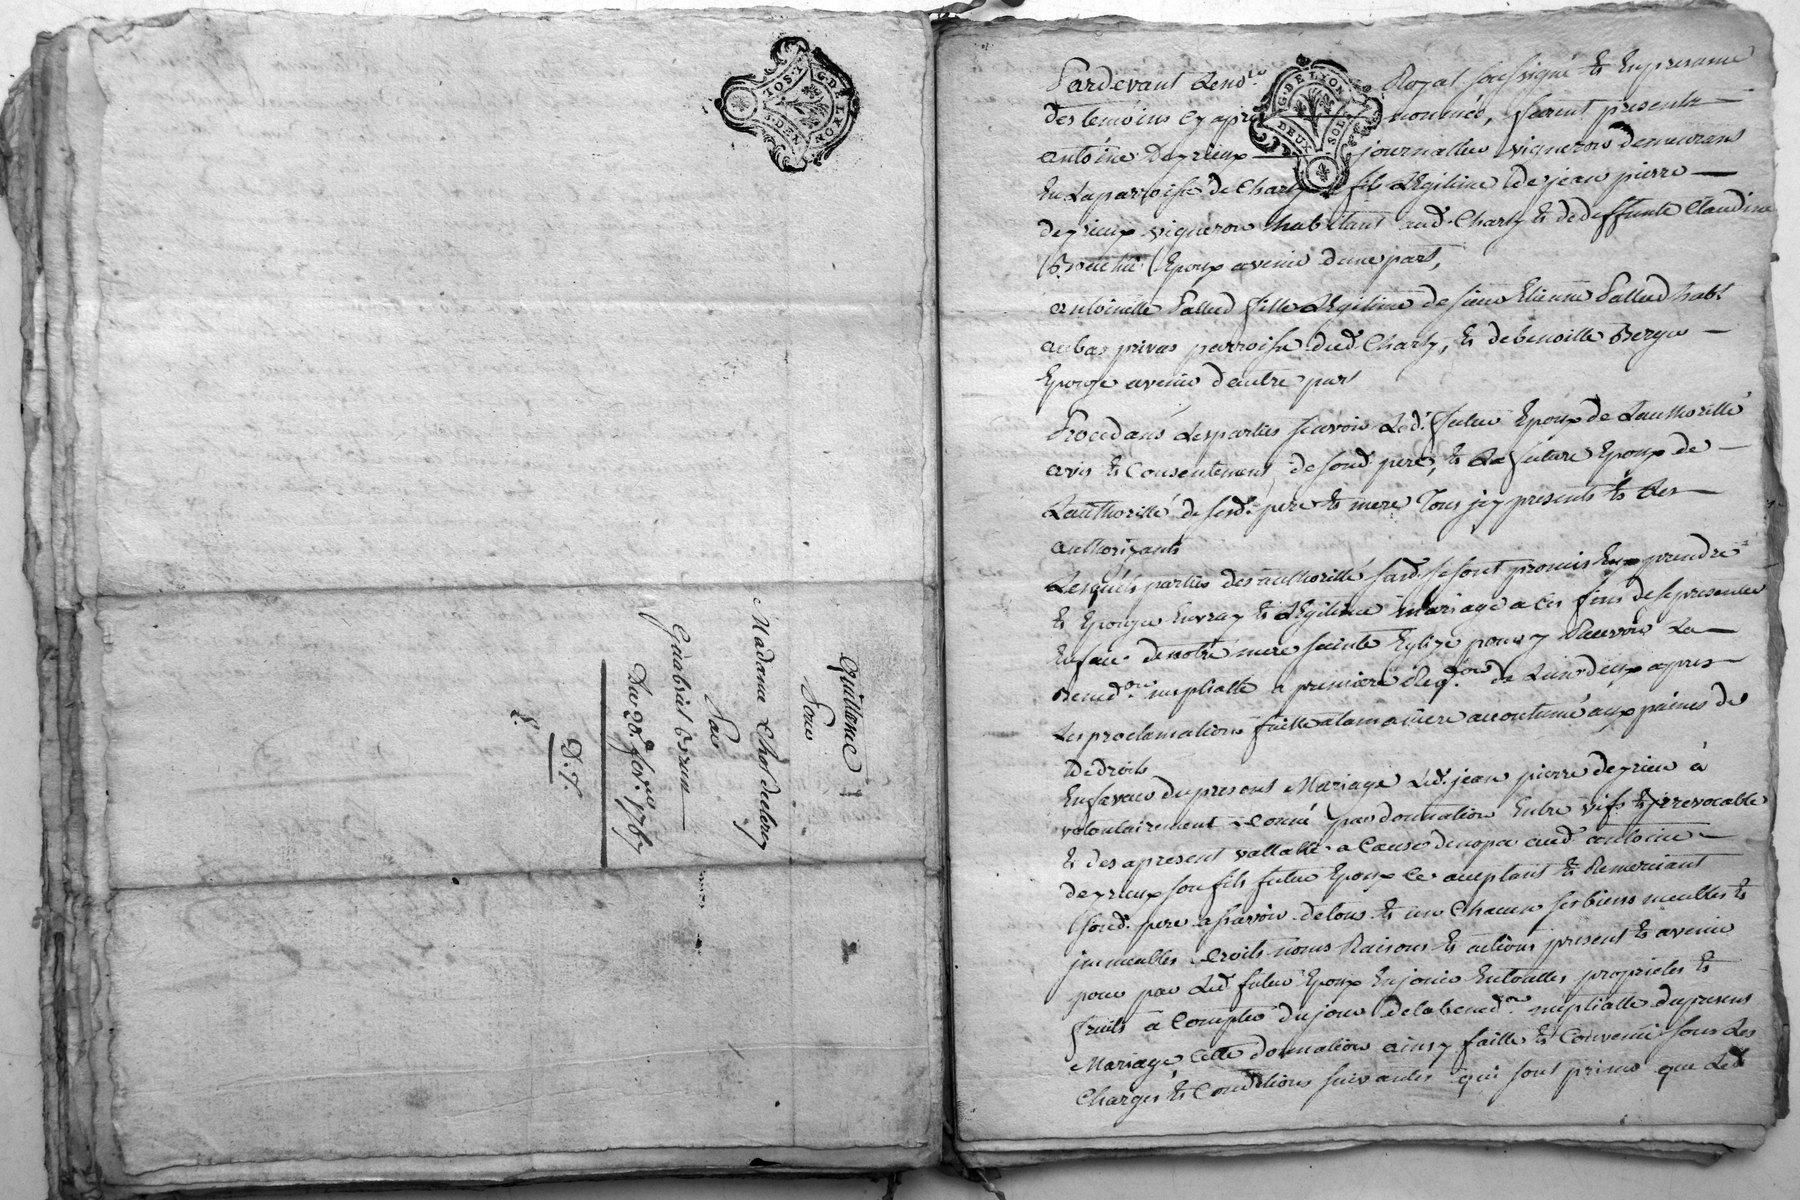 G. DE LYON
DEUX SOLS
Quittance
Pour
Madame Chol declerey
Par
Gxabriel brun
Du 20e fev.er 1767
D. T.
G. DE LYON
DEUX SOLS
Pardevant Le no.re Royal soussigné et En presence
des temoins cy aprés nommés, furent presents
antoine Deyrieux journallier vigneron demeurant
En La parroisse de Charly fils Légitime de jean pierre
deyrieux vigneron habitant aud. Charly et de deffunte Claudine
Epoux avenir d'une part,
antoinette Pallud fille Légitime de sieur Etienne Pallud hab.t
au bas privas parroisse dud. Charly, et de benoitte Berger
Epouze avenir d'autre part
Procedans Les parties sçavoir Led. futur Epoux de Lauthorité
avis et Consentement de sond. pere, et La future Epouze de
Lauthorité de sesd. pere et mere Tous jcy presents et Les
authorizants
Lesquels parties des authorités susd. se sont promis Eux prendre
et Epouzer En vray et Légitime mariage a ces fins de se presenter
En face de notre mere sainte Eglize pour y Recevoir La
Bened.on nuptialle a premiere req.on de L'un deux apres
Les proclamations faitte a la maniere accoutumé aux peines de
de droits
En faveur du present Mariage Led. jean pierre deyrieu à
volontairement donné par donnation Entre vifs et jrrevocable
et des apresent vallable a Cause de nopce aud. antoine
deyrieux son fils futur Epoux ce acceptant et Remerciant
sond. pere a sçavoir de tous et un Chacun ses biens meubles et
jmmeubles droits noms Raisons et actions present et avenir
pour par Led. futur Epoux En jouir En touttes proprietes et
fruits à Compter du jour de la bened.on nuptialle du present
Mariage, Cette donnation ainsy faitte et Convenu sous Les
Charges et Conditions suivantes qui sont primo que Led.